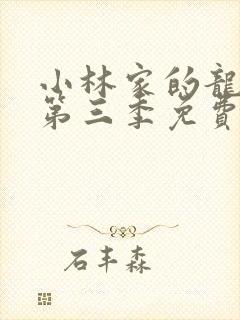 小林家的龍
第三季免費
石丰森